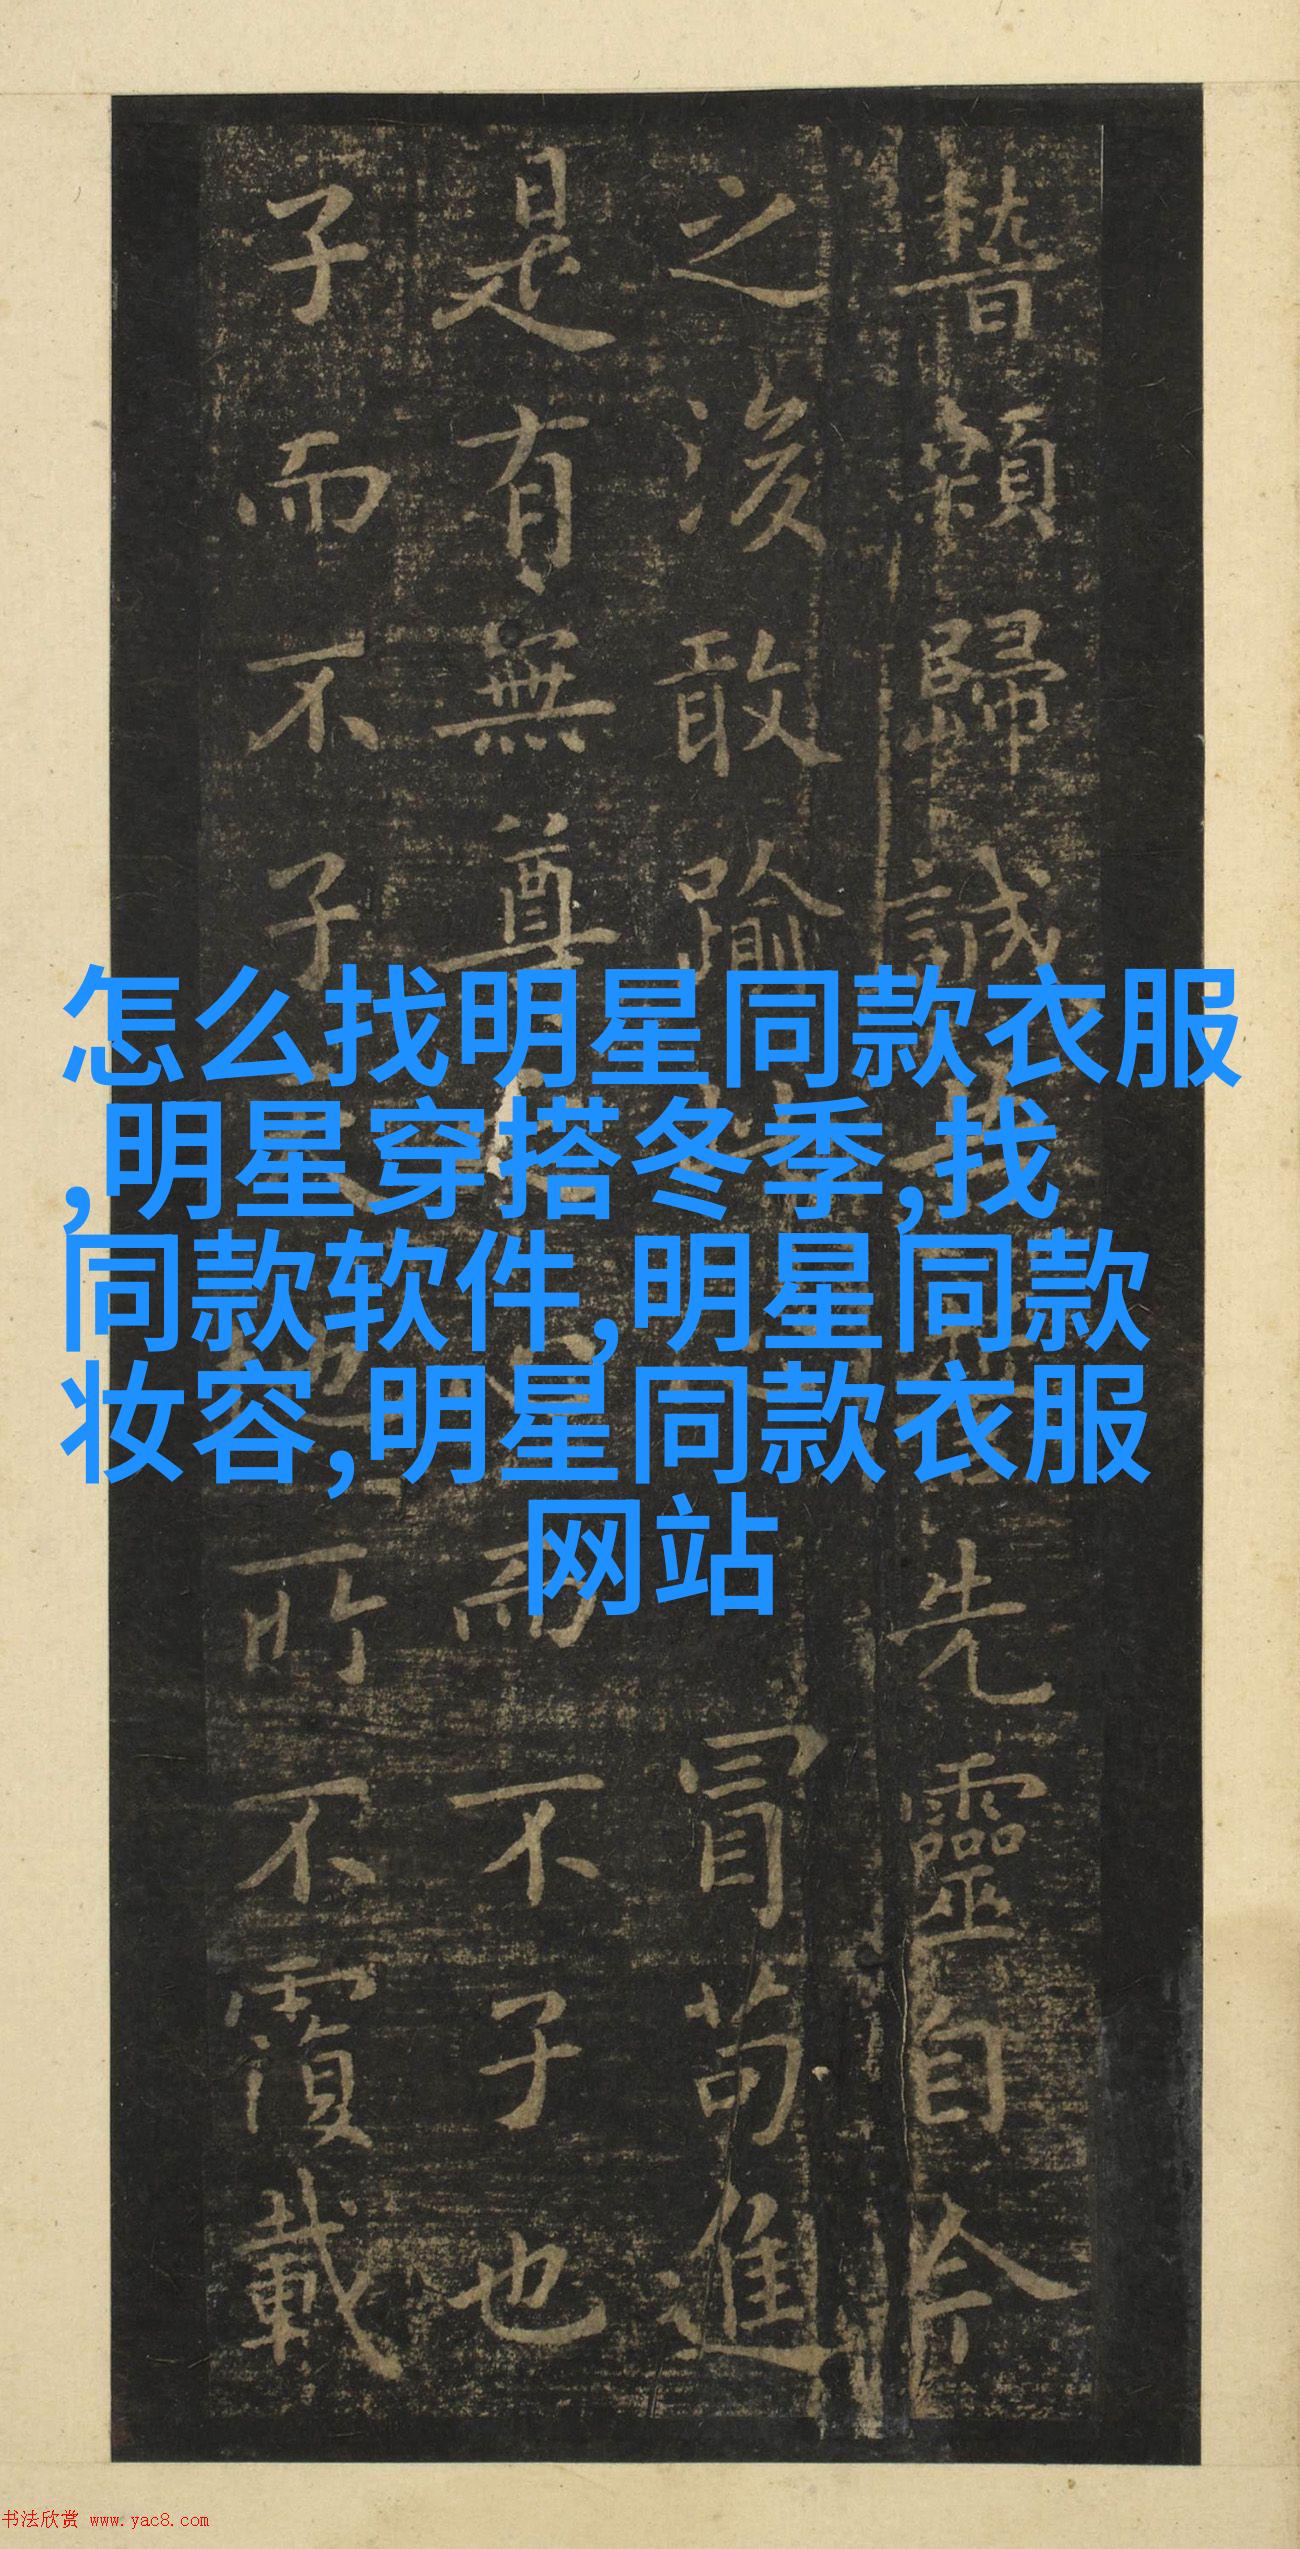 稽顙歸誠 先靈自今
之後敢踰 冒苟進
是有無尊 而不子也
子而不子 所不覆載
怎么找明星同款衣服
,明星穿搭冬季,找
同款软件,明星同款
妆容,明星同款衣服
网站
书法欣赏 www.yac8.com